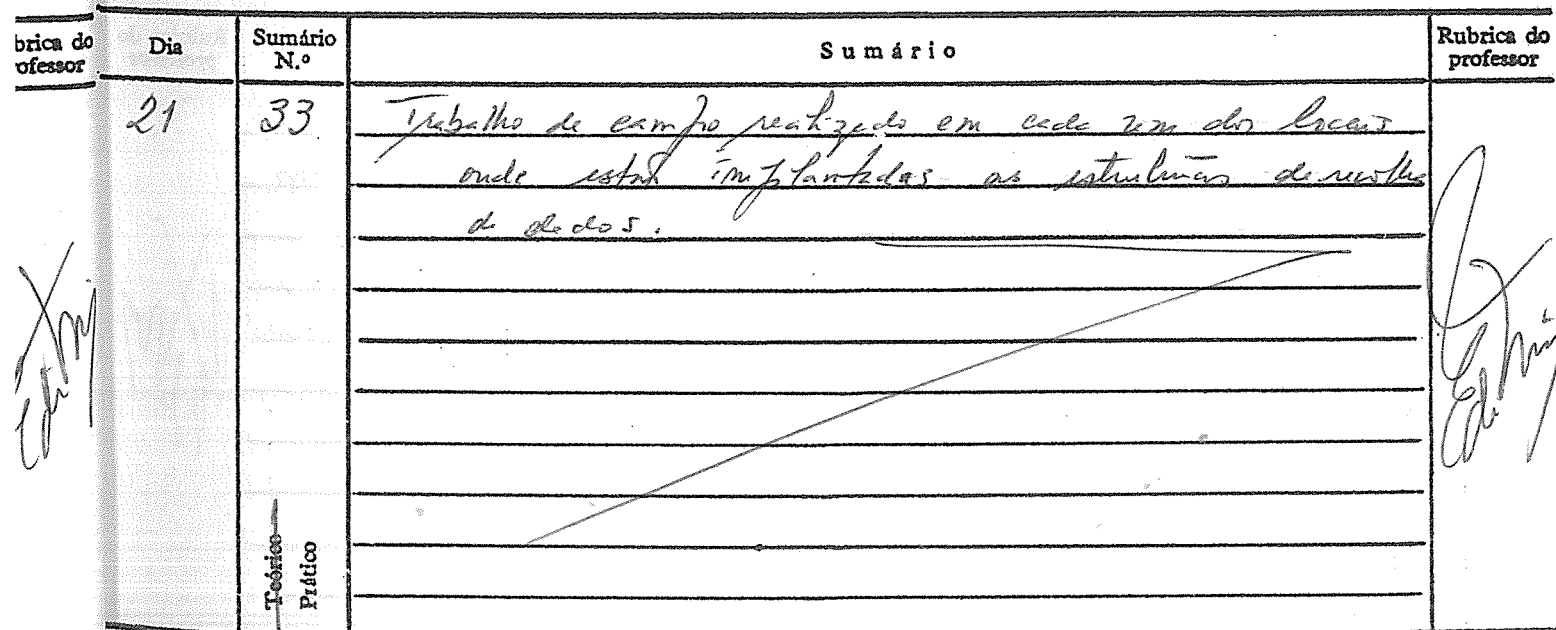 brica do
ofessor
Dia
Sumário
N.º
Sumário
Rubrica do
professor
21
33
Trabalho de campo realizado em cada um dos locais
onde estão implantadas as estruturas de recolha
de dados.
Teórico
Prático